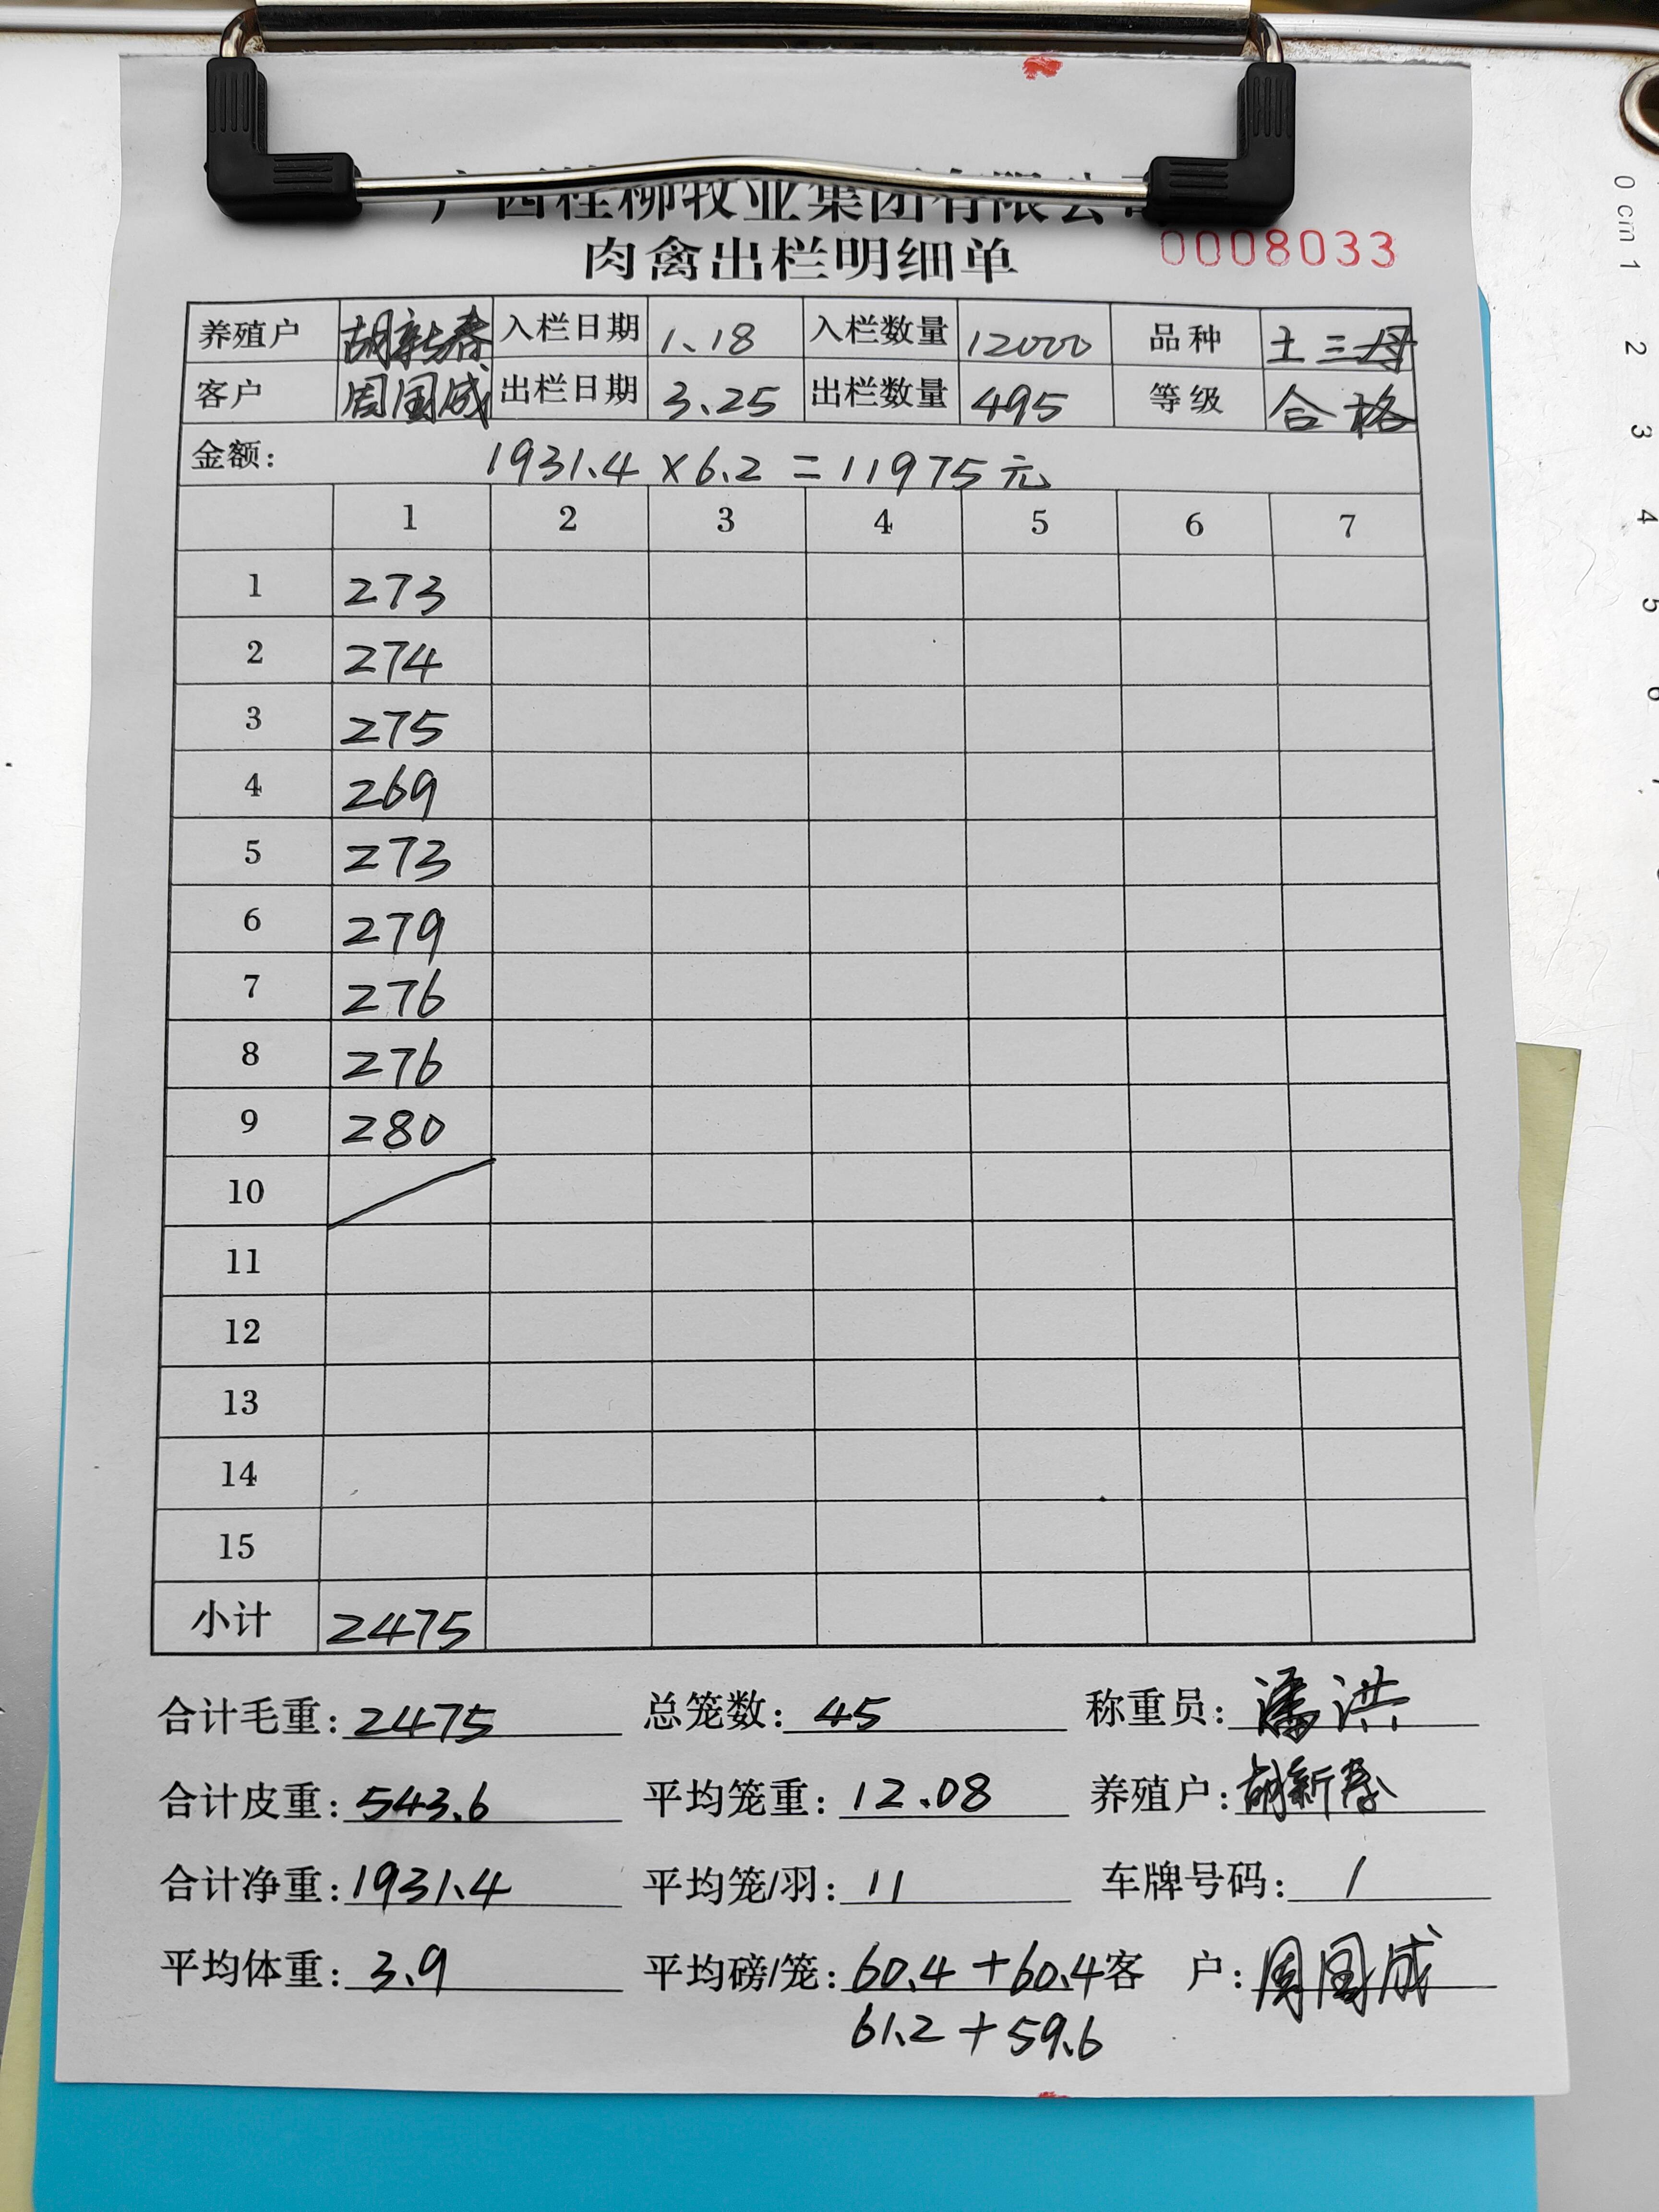 广西桂柳牧业集团有限公司
肉禽出栏明细单
0008033
养殖户 胡新春 入栏日期 1.18 入栏数量 12000 品种 土三母
客户 周国成 出栏日期 3.25 出栏数量 495 等级 合格
金额: 1931.4×6.2=11975元
1 2 3 4 5 6 7
1 273
2 274
3 275
4 269
5 273
6 279
7 276
8 276
9 280
10
11
12
13
14
15
小计 2475
合计毛重: 2475 总笼数: 45 称重员: 潘洪
合计皮重: 543.6 平均笼重: 12.08 养殖户: 胡新春
合计净重: 1931.4 平均笼/羽: 11 车牌号码: /
平均体重: 3.9 平均磅/笼: 60.4+60.4 客 户: 周国成
61.2+59.6
0 cm 1
2
3
4
5
6
7